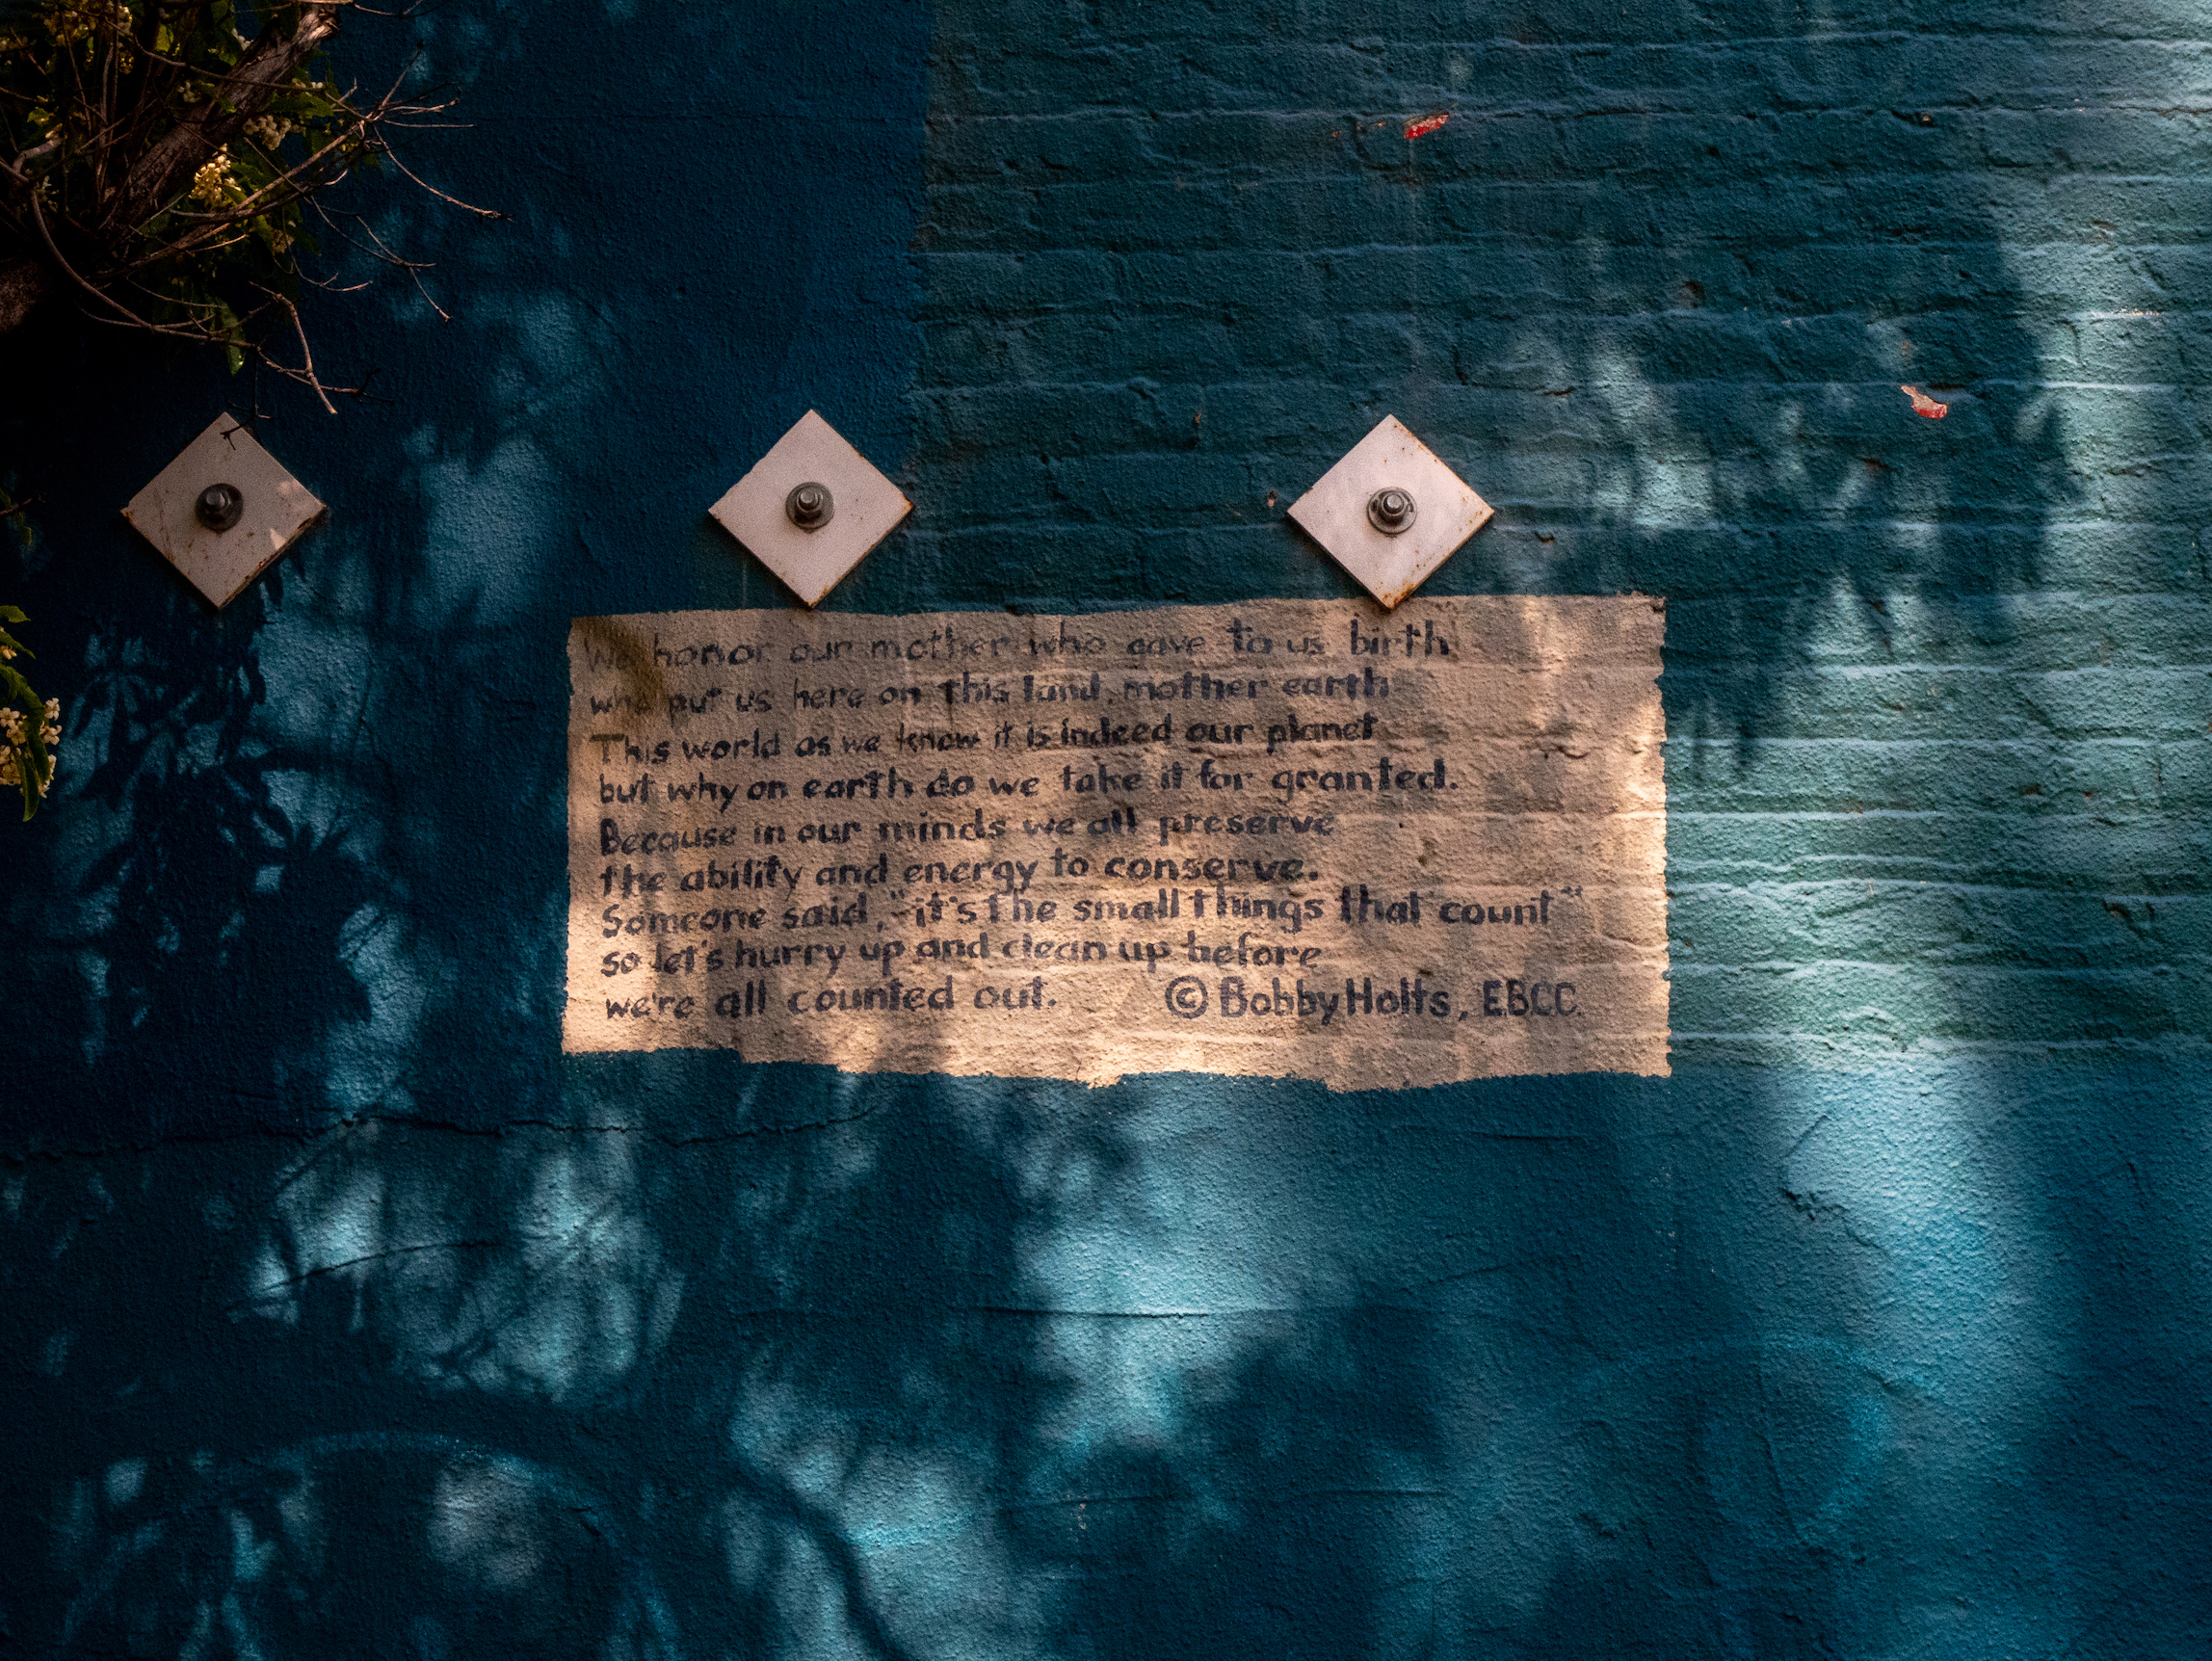 We honor our mother who gave to us birth
who put us here on this land, mother earth
This world as we know it is indeed our planet
but why on earth do we take it for granted.
Because in our minds we all preserve
the ability and energy to conserve.
Someone said, "it's the small things that count"
so let's hurry up and clean up before
we're all counted out. © Bobby Holts, E.B.C.C.